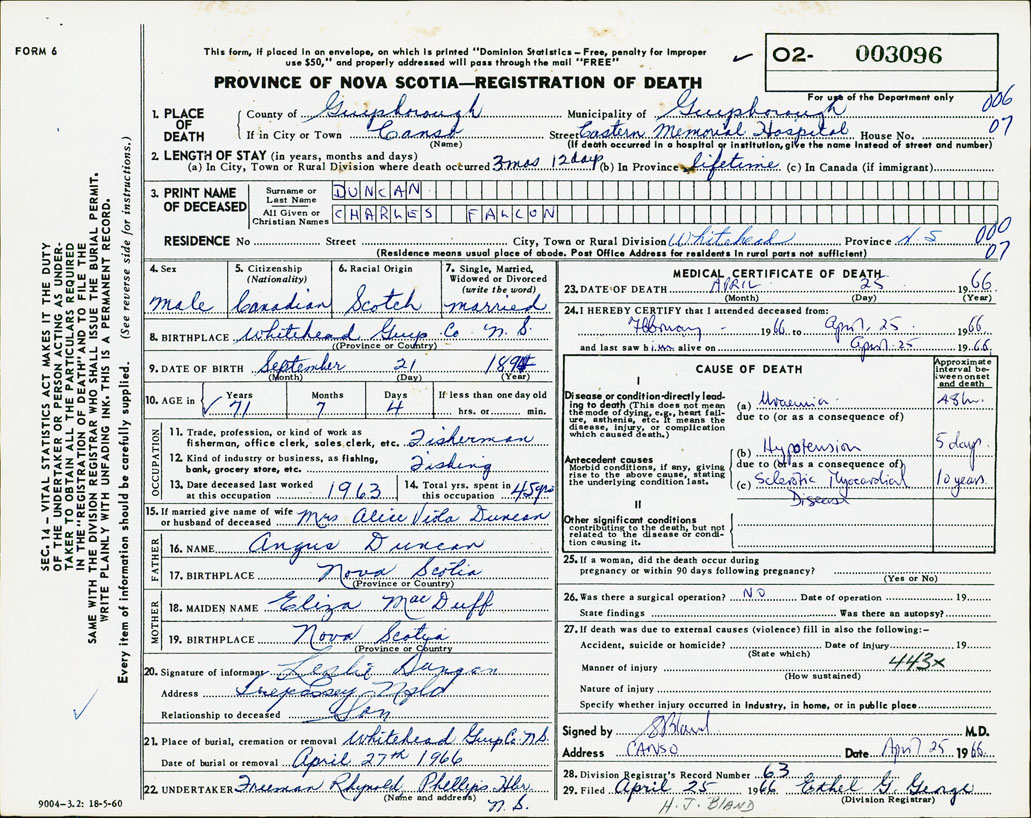 FORM 6
This form, if placed in an envelope, on which is printed "Dominion Statistics – Free, penalty for improper
use $50," and properly addressed will pass through the mail "FREE"
02- 003096
PROVINCE OF NOVA SCOTIA—REGISTRATION OF DEATH
For use of the Department only
006
07
1. PLACE OF DEATH
County of Guysborough Municipality of Guysborough
If in City or Town Canso Street Eastern Memorial Hospital House No.
(Name) (If death occurred in a hospital or institution, give the name instead of street and number)
2. LENGTH OF STAY (in years, months and days)
(a) In City, Town or Rural Division where death occurred 3 mos 12 days (b) In Province lifetime (c) In Canada (if immigrant)
3. PRINT NAME OF DECEASED
Surname or Last Name DUNCAN
All Given or Christian Names CHARLES FALCON
RESIDENCE No Street City, Town or Rural Division Whitehead Province N.S
000
07
(Residence means usual place of abode. Post Office Address for residents in rural parts not sufficient)
4. Sex
male
5. Citizenship
(Nationality)
Canadian
6. Racial Origin
Scotch
7. Single, Married, Widowed or Divorced
(write the word)
married
8. BIRTHPLACE Whitehead Guys. Co. N.S.
(Province or Country)
9. DATE OF BIRTH September 21 1894
(Month) (Day) (Year)
10. AGE in Years 71 Months 7 Days 4 If less than one day old hrs. or min.
OCCUPATION
11. Trade, profession, or kind of work as
fisherman, office clerk, sales clerk, etc. Fisherman
12. Kind of industry or business, as fishing,
bank, grocery store, etc. Fishing
13. Date deceased last worked at this occupation 1963
14. Total yrs. spent in this occupation 45 yrs
15. If married give name of wife or husband of deceased Mrs Alice Viola Duncan
FATHER
16. NAME Angus Duncan
17. BIRTHPLACE Nova Scotia
(Province or Country)
MOTHER
18. MAIDEN NAME Eliza MacDuff
19. BIRTHPLACE Nova Scotia
(Province or Country
20. Signature of informant Leslie Duncan
Address Trepassey Nfld
Relationship to deceased Son
21. Place of burial, cremation or removal Whitehead Guys Co. N.S.
Date of burial or removal April 27th 1966
22. UNDERTAKER Freeman Rhynold Phillips Hbr.
(Name and address) N.S.
9004-3.2: 18-5-60
MEDICAL CERTIFICATE OF DEATH
23. DATE OF DEATH APRIL 25 1966
(Month) (Day) (Year)
24. I HEREBY CERTIFY that I attended deceased from:
February 1966 to April, 25 1966
and last saw him alive on April 25 1966
CAUSE OF DEATH
Approximate interval between onset and death
I
Disease or condition directly leading to death (This does not mean the mode of dying, e.g., heart failure, asthenia, etc. It means the disease, injury, or complication which caused death.)
(a) Uraemia 48hr.
due to (or as a consequence of)
(b) Hypotension 5 days
Antecedent causes
Morbid conditions, if any, giving rise to the above cause, stating the underlying condition last.
due to (or as a consequence of)
(c) Sclerotic Myocardial Disease 10 years
II
Other significant conditions
contributing to the death, but not related to the disease or condition causing it.
25. If a woman, did the death occur during
pregnancy or within 90 days following pregnancy?
(Yes or No)
26. Was there a surgical operation? NO Date of operation 19
State findings Was there an autopsy?
27. If death was due to external causes (violence) fill in also the following:–
Accident, suicide or homicide? Date of injury 19
(State which)
443x
Manner of injury
(How sustained)
Nature of injury
Specify whether injury occurred in industry, in home, or in public place
Signed by SBland M.D.
Address CANSO Date April 25 1966
28. Division Registrar's Record Number 63
29. Filed April 25 1966 Ethel G. George
(Division Registrar)
H. J. BLAND
SEC. 14 – VITAL STATISTICS ACT MAKES IT THE DUTY
OF THE UNDERTAKER OR PERSON ACTING AS UNDER-
TAKER TO OBTAIN ALL THE PARTICULARS REQUIRED
IN THE "REGISTRATION OF DEATH" AND TO FILE THE
SAME WITH THE DIVISION REGISTRAR WHO SHALL ISSUE THE BURIAL PERMIT.
WRITE PLAINLY WITH UNFADING INK. THIS IS A PERMANENT RECORD.
Every item of information should be carefully supplied. (See reverse side for instructions.)